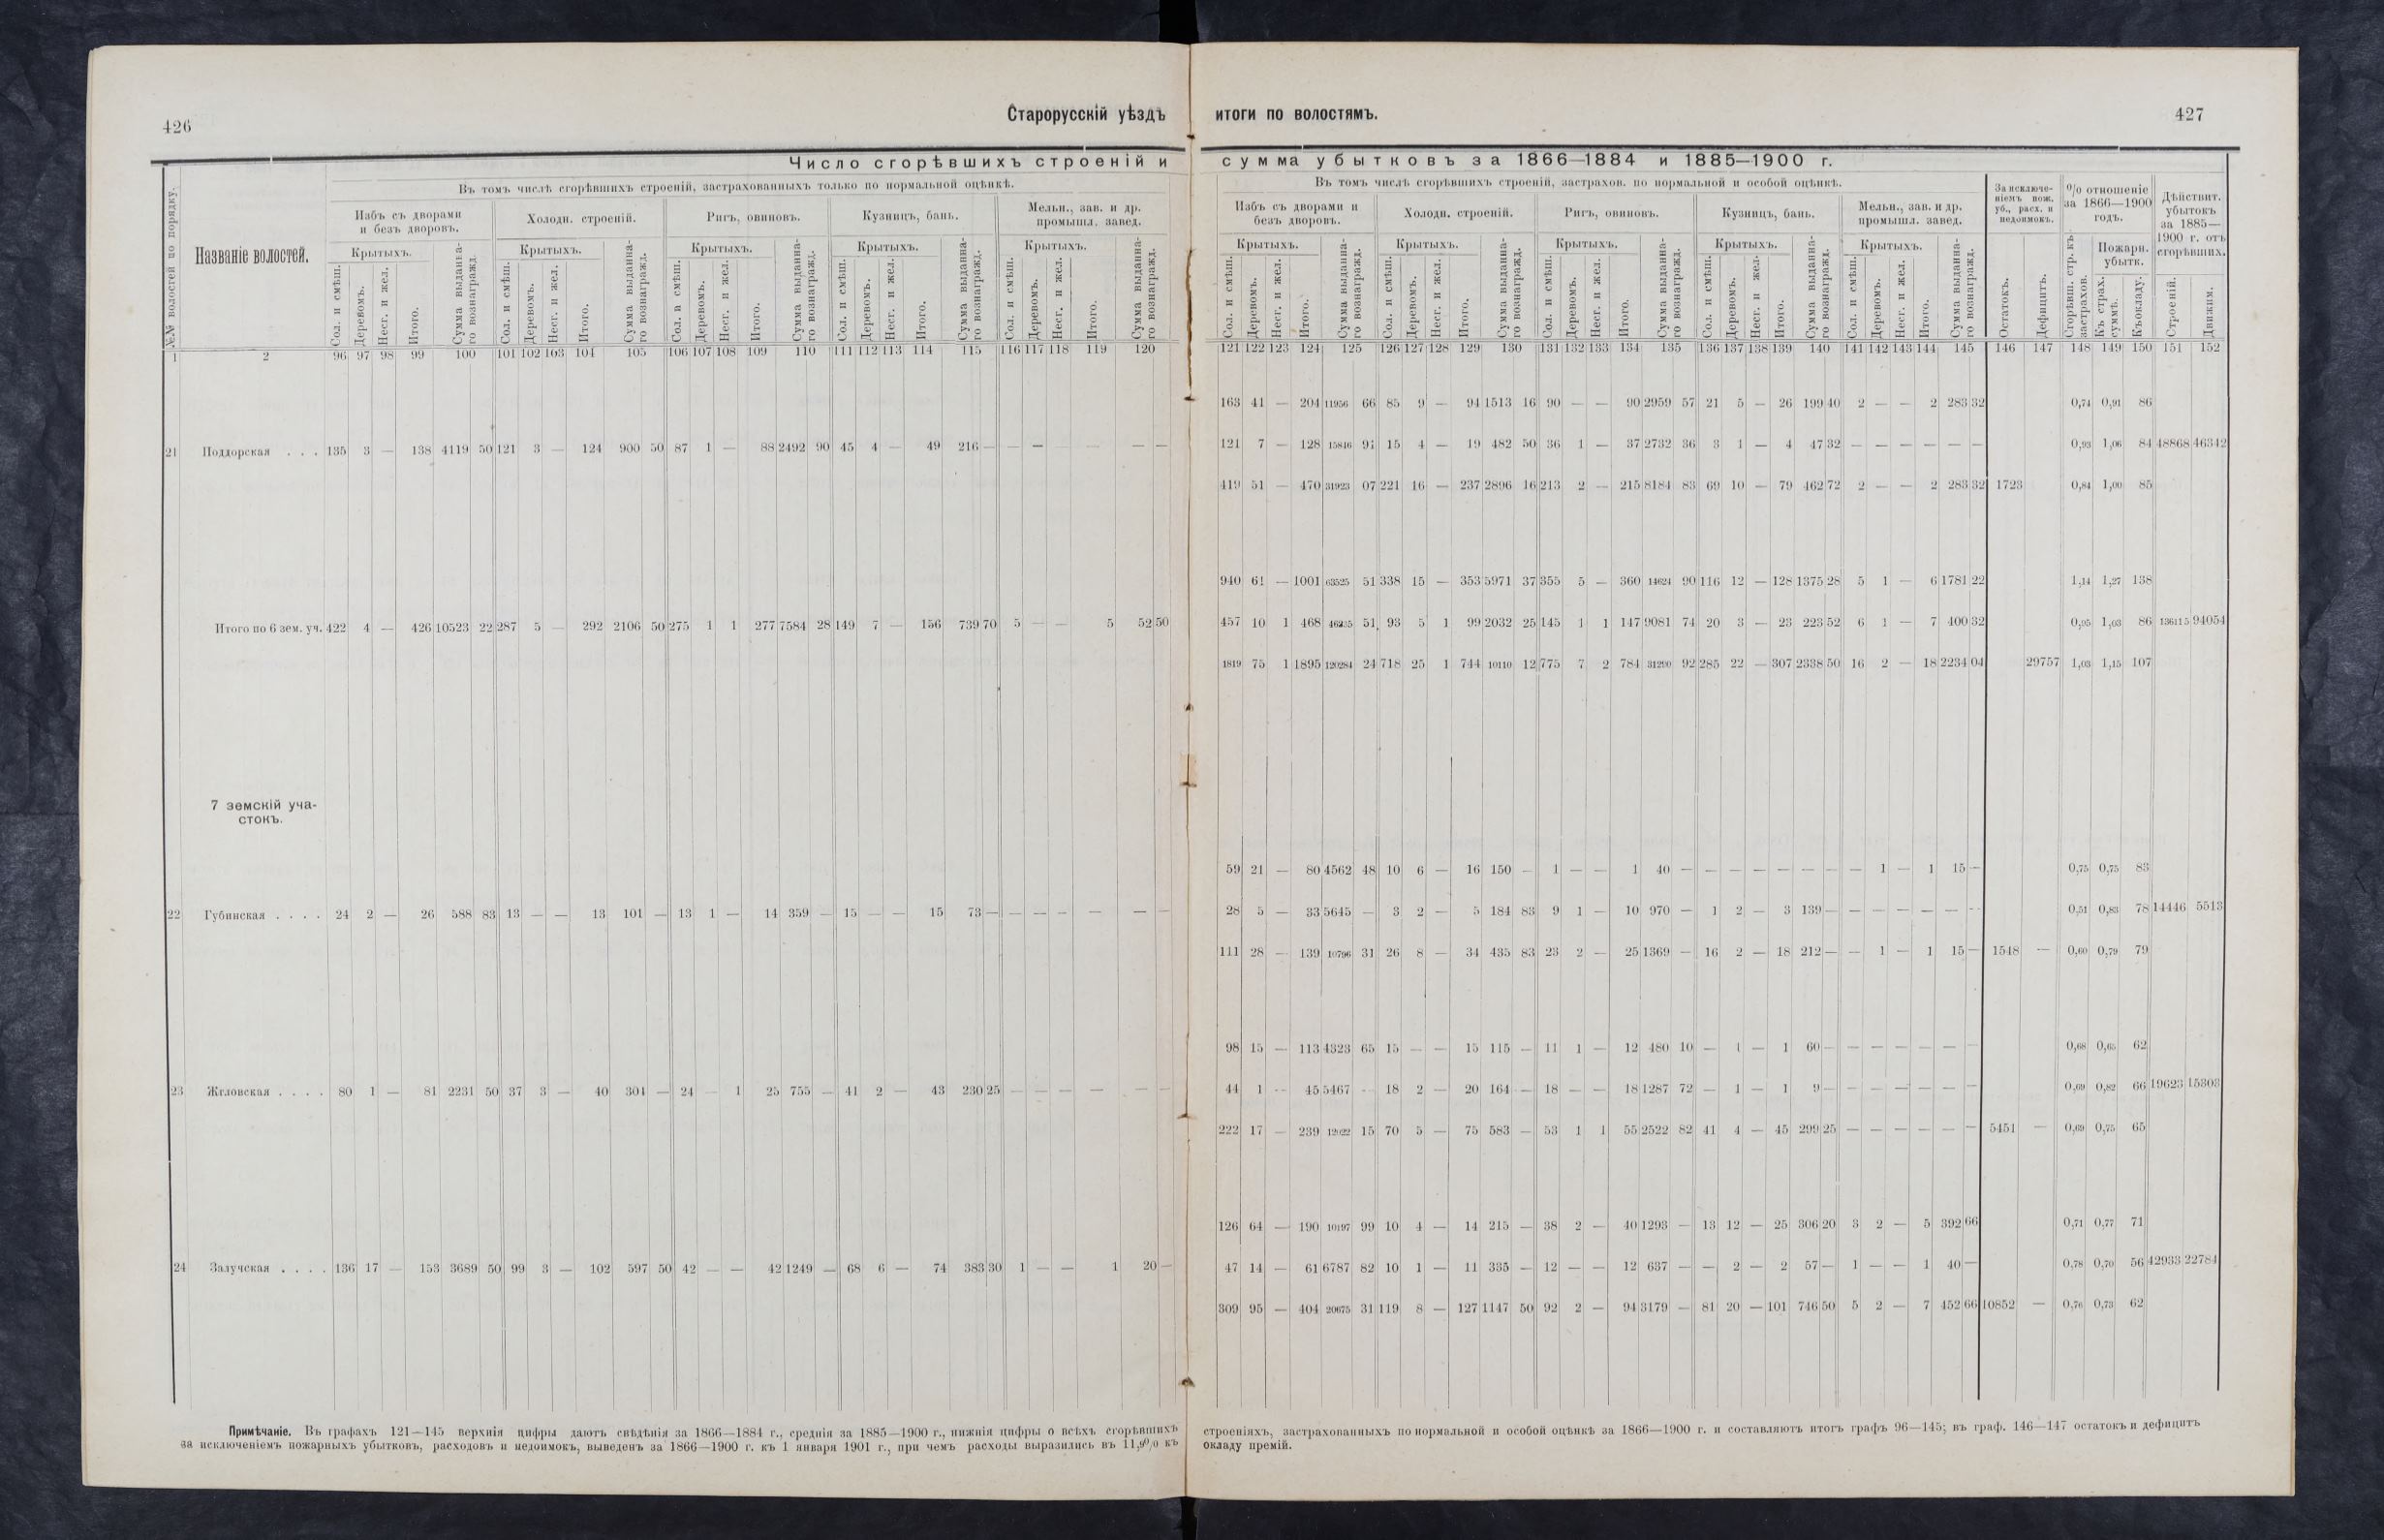 426
Старорусскій уѣздъ
итоги по волостямъ.
427
Число сгорѣвшихъ строеній и
сумма убытковъ за 1866—1884 и 1885—1900 г.
№№ волостей по порядку.
Названіе волостей.
Въ томъ числѣ сгорѣвшихъ строеній, застрахованныхъ только по нормальной оцѣнкѣ.
Избъ съ дворами и безъ дворовъ.
Холодн. строеній.
Ригъ, овиновъ.
Кузницъ, бань.
Мельн., зав. и др. промышл. завед.
Крытыхъ. Крытыхъ. Крытыхъ. Крытыхъ. Крытыхъ.
Сол. и смѣш. Деревомъ. Несг. и жел. Итого. Сумма выданнаго вознагражд.
Сол. и смѣш. Деревомъ. Несг. и жел. Итого. Сумма выданнаго вознагражд.
Сол. и смѣш. Деревомъ. Несг. и жел. Итого. Сумма выданнаго вознагражд.
Сол. и смѣш. Деревомъ. Несг. и жел. Итого. Сумма выданнаго вознагражд.
Сол. и смѣш. Деревомъ. Несг. и жел. Итого. Сумма выданнаго вознагражд.
1 2 96 97 98 99 100 101 102 103 104 105 106 107 108 109 110 111 112 113 114 115 116 117 118 119 120
21 Поддорская . . . 135 3 — 138 4119 50 121 3 — 124 900 50 87 1 — 88 2492 90 45 4 — 49 216 — — — — — — —
Итого по 6 зем. уч. 422 4 — 426 10523 22 287 5 — 292 2106 50 275 1 1 277 7584 28 149 7 — 156 739 70 5 — — 5 52 50
7 земскій уча-
стокъ.
22 Губинская . . . . 24 2 — 26 588 83 13 — — 13 101 — 13 1 — 14 359 — 15 — — 15 73 — — — — — — —
23 Жгловская . . . . 80 1 — 81 2231 50 37 3 — 40 304 — 24 — 1 25 755 — 41 2 — 43 230 25 — — — — — —
24 Залучская . . . . 136 17 — 153 3689 50 99 3 — 102 597 50 42 — — 42 1249 — 68 6 — 74 383 30 1 — — 1 20 —
Въ томъ числѣ сгорѣвшихъ строеній, застрахов. по нормальной и особой оцѣнкѣ.
Избъ съ дворами и безъ дворовъ.
Холодн. строеній.
Ригъ, овиновъ.
Кузницъ, бань.
Мельн., зав. и др. промышл. завед.
За исключе-
ніемъ пож.
уб., расх. и
недоимокъ.
% отношеніе
за 1866—1900
годъ.
Дѣйствит.
убытокъ
за 1885—
1900 г. отъ
сгорѣвшихъ.
Крытыхъ. Крытыхъ. Крытыхъ. Крытыхъ. Крытыхъ.
Пожарн. убытк.
Сол. и смѣш. Деревомъ. Несг. и жел. Итого. Сумма выданнаго вознагражд.
Сол. и смѣш. Деревомъ. Несг. и жел. Итого. Сумма выданнаго вознагражд.
Сол. и смѣш. Деревомъ. Несг. и жел. Итого. Сумма выданнаго вознагражд.
Сол. и смѣш. Деревомъ. Несг. и жел. Итого. Сумма выданнаго вознагражд.
Сол. и смѣш. Деревомъ. Несг. и жел. Итого. Сумма выданнаго вознагражд.
Остатокъ. Дефицитъ. Сгорѣвш. стр. къ застрахов. Къ страх. суммѣ. Къ окладу. Строеній. Движим.
121 122 123 124 125 126 127 128 129 130 131 132 133 134 135 136 137 138 139 140 141 142 143 144 145 146 147 148 149 150 151 152
163 41 — 204 11956 66 85 9 — 94 1513 16 90 — — 90 2959 57 21 5 — 26 199 40 2 — — 2 283 32 0,74 0,91 86
121 7 — 128 15846 91 15 4 — 19 482 50 36 1 — 37 2732 36 3 1 — 4 47 32 — — — — — — 0,93 1,06 84 48868 46342
419 51 — 470 31923 07 221 16 — 237 2896 16 213 2 — 215 8184 83 69 10 — 79 462 72 2 — — 2 283 32 1723 0,84 1,00 85
940 61 — 1001 63525 51 338 15 — 353 5971 37 355 5 — 360 14624 90 116 12 — 128 1375 28 5 1 — 6 1781 22 1,14 1,27 138
457 10 1 468 46235 51 93 5 1 99 2032 25 145 1 1 147 9081 74 20 3 — 23 223 52 6 1 — 7 400 32 0,95 1,03 86 136115 94054
1819 75 1 1895 120284 24 718 25 1 744 10110 12 775 7 2 784 31290 92 285 22 — 307 2338 50 16 2 — 18 2234 04 29757 1,03 1,15 107
59 21 — 80 4562 48 10 6 — 16 150 — 1 — — 1 40 — — — — — — — — 1 — 1 15 — 0,75 0,75 83
28 5 — 33 5645 — 3 2 — 5 184 83 9 1 — 10 970 — 1 2 — 3 139 — — — — — — — 0,51 0,83 78 14446 5513
111 28 — 139 10796 31 26 8 — 34 435 83 23 2 — 25 1369 — 16 2 — 18 212 — — 1 — 1 15 — 1548 — 0,60 0,79 79
98 15 — 113 4323 65 15 — — 15 115 — 11 1 — 12 480 10 — 1 — 1 60 — — — — — — — 0,68 0,65 62
44 1 — 45 5467 — 18 2 — 20 164 — 18 — — 18 1287 72 — 1 — 1 9 — — — — — — — 0,69 0,82 66 19623 15303
222 17 — 239 12022 15 70 5 — 75 583 — 53 1 1 55 2522 82 41 4 — 45 299 25 — — — — — — 5451 — 0,69 0,75 65
126 64 — 190 10197 99 10 4 — 14 215 — 38 2 — 40 1293 — 13 12 — 25 306 20 3 2 — 5 392 66 0,71 0,77 71
47 14 — 61 6787 82 10 1 — 11 335 — 12 — — 12 637 — — 2 — 2 57 — 1 — — 1 40 — 0,78 0,70 56 42933 22784
309 95 — 404 20675 31 119 8 — 127 1147 50 92 2 — 94 3179 — 81 20 — 101 746 50 5 2 — 7 452 66 10852 — 0,76 0,73 62
Примѣчаніе. Въ графахъ 121—145 верхнія цифры даютъ свѣдѣнія за 1866—1884 г., среднія за 1885—1900 г., нижнія цифры о всѣхъ сгорѣвшихъ
строеніяхъ, застрахованныхъ по нормальной и особой оцѣнкѣ за 1866—1900 г. и составляютъ итогъ графъ 96—145; въ граф. 146—147 остатокъ и дефицитъ
за исключеніемъ пожарныхъ убытковъ, расходовъ и недоимокъ, выведенъ за 1866—1900 г. къ 1 января 1901 г., при чемъ расходы выразились въ 11,9% къ
окладу премій.